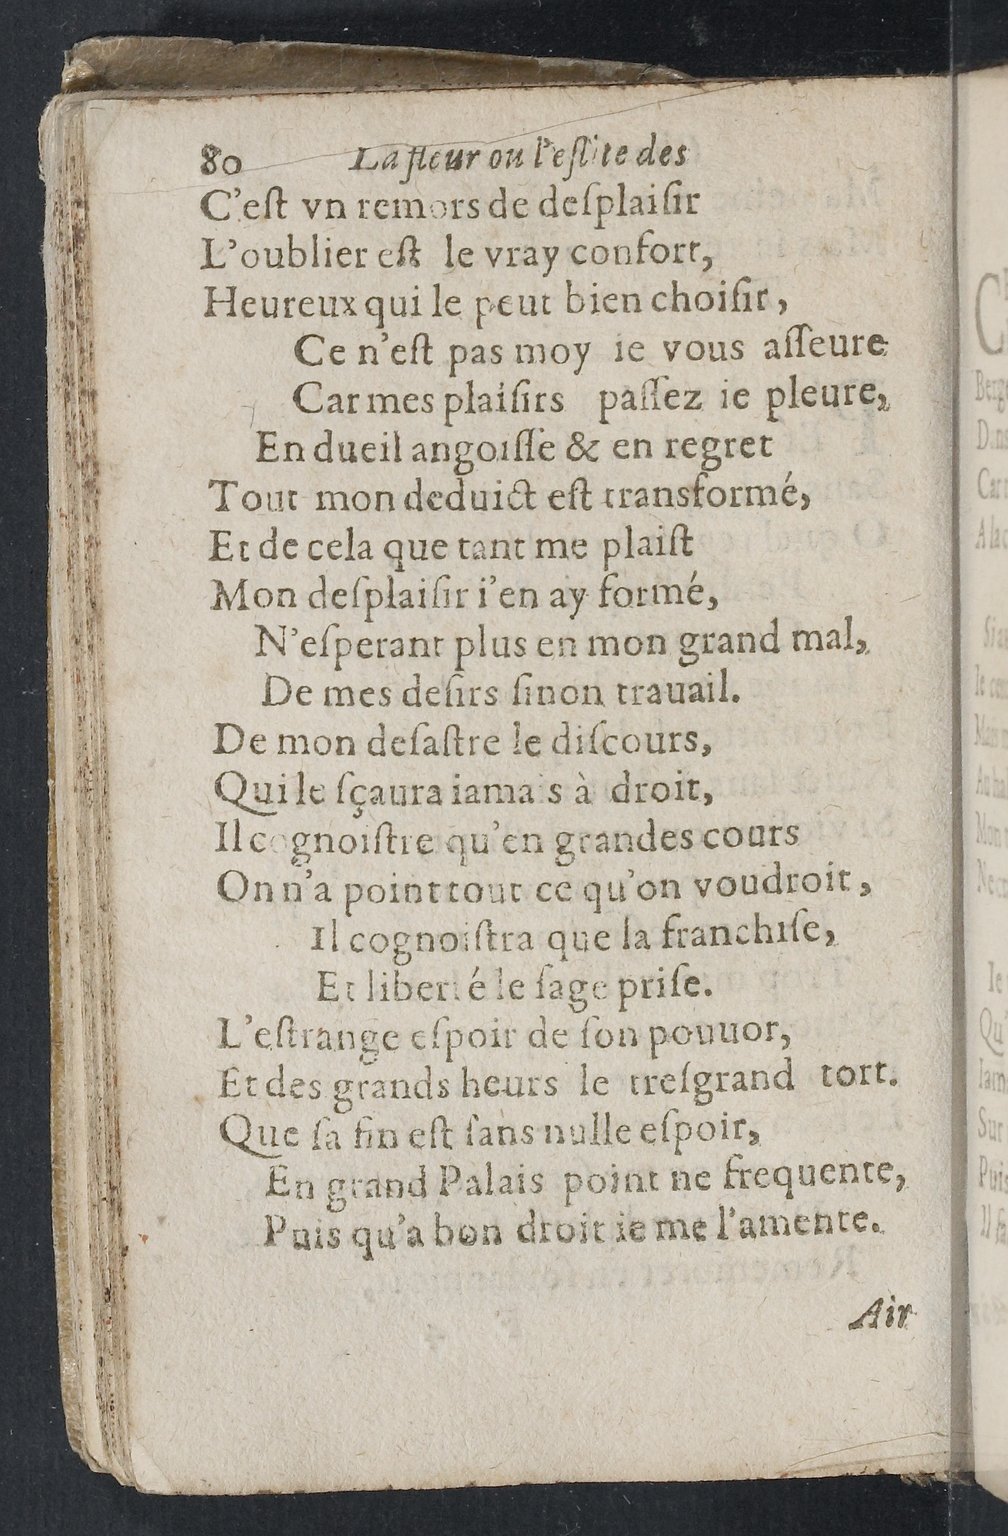 80 La fleur ou l'eſlite des
C'eſt vn remors de deſplaiſir
L'oublier eſt le vray confort,
Heureux qui le peut bien choiſir,
Ce n'eſt pas moy ie vous aſſeure
Car mes plaiſirs paſſez ie pleure,
En dueil angoiſſe & en regret
Tout mon deduict eſt transformé,
Et de cela que tant me plaiſt
Mon deſplaiſir i'en ay formé,
N'eſperant plus en mon grand mal,
De mes deſirs ſinon trauail.
De mon deſaſtre le diſcours,
Qui le ſçaura iamais à droit,
Il cognoiſtre qu'en grandes cours
On n'a point tout ce qu'on voudroit,
Il cognoiſtra que la franchiſe,
Et liberté le ſage priſe.
L'eſtrange eſpoir de ſon pouuor,
Et des grands heurs le treſgrand tort.
Que ſa fin eſt ſans nulle eſpoir,
En grand Palais point ne frequente,
Puis qu'a bon droit ie me l'amente.
Air